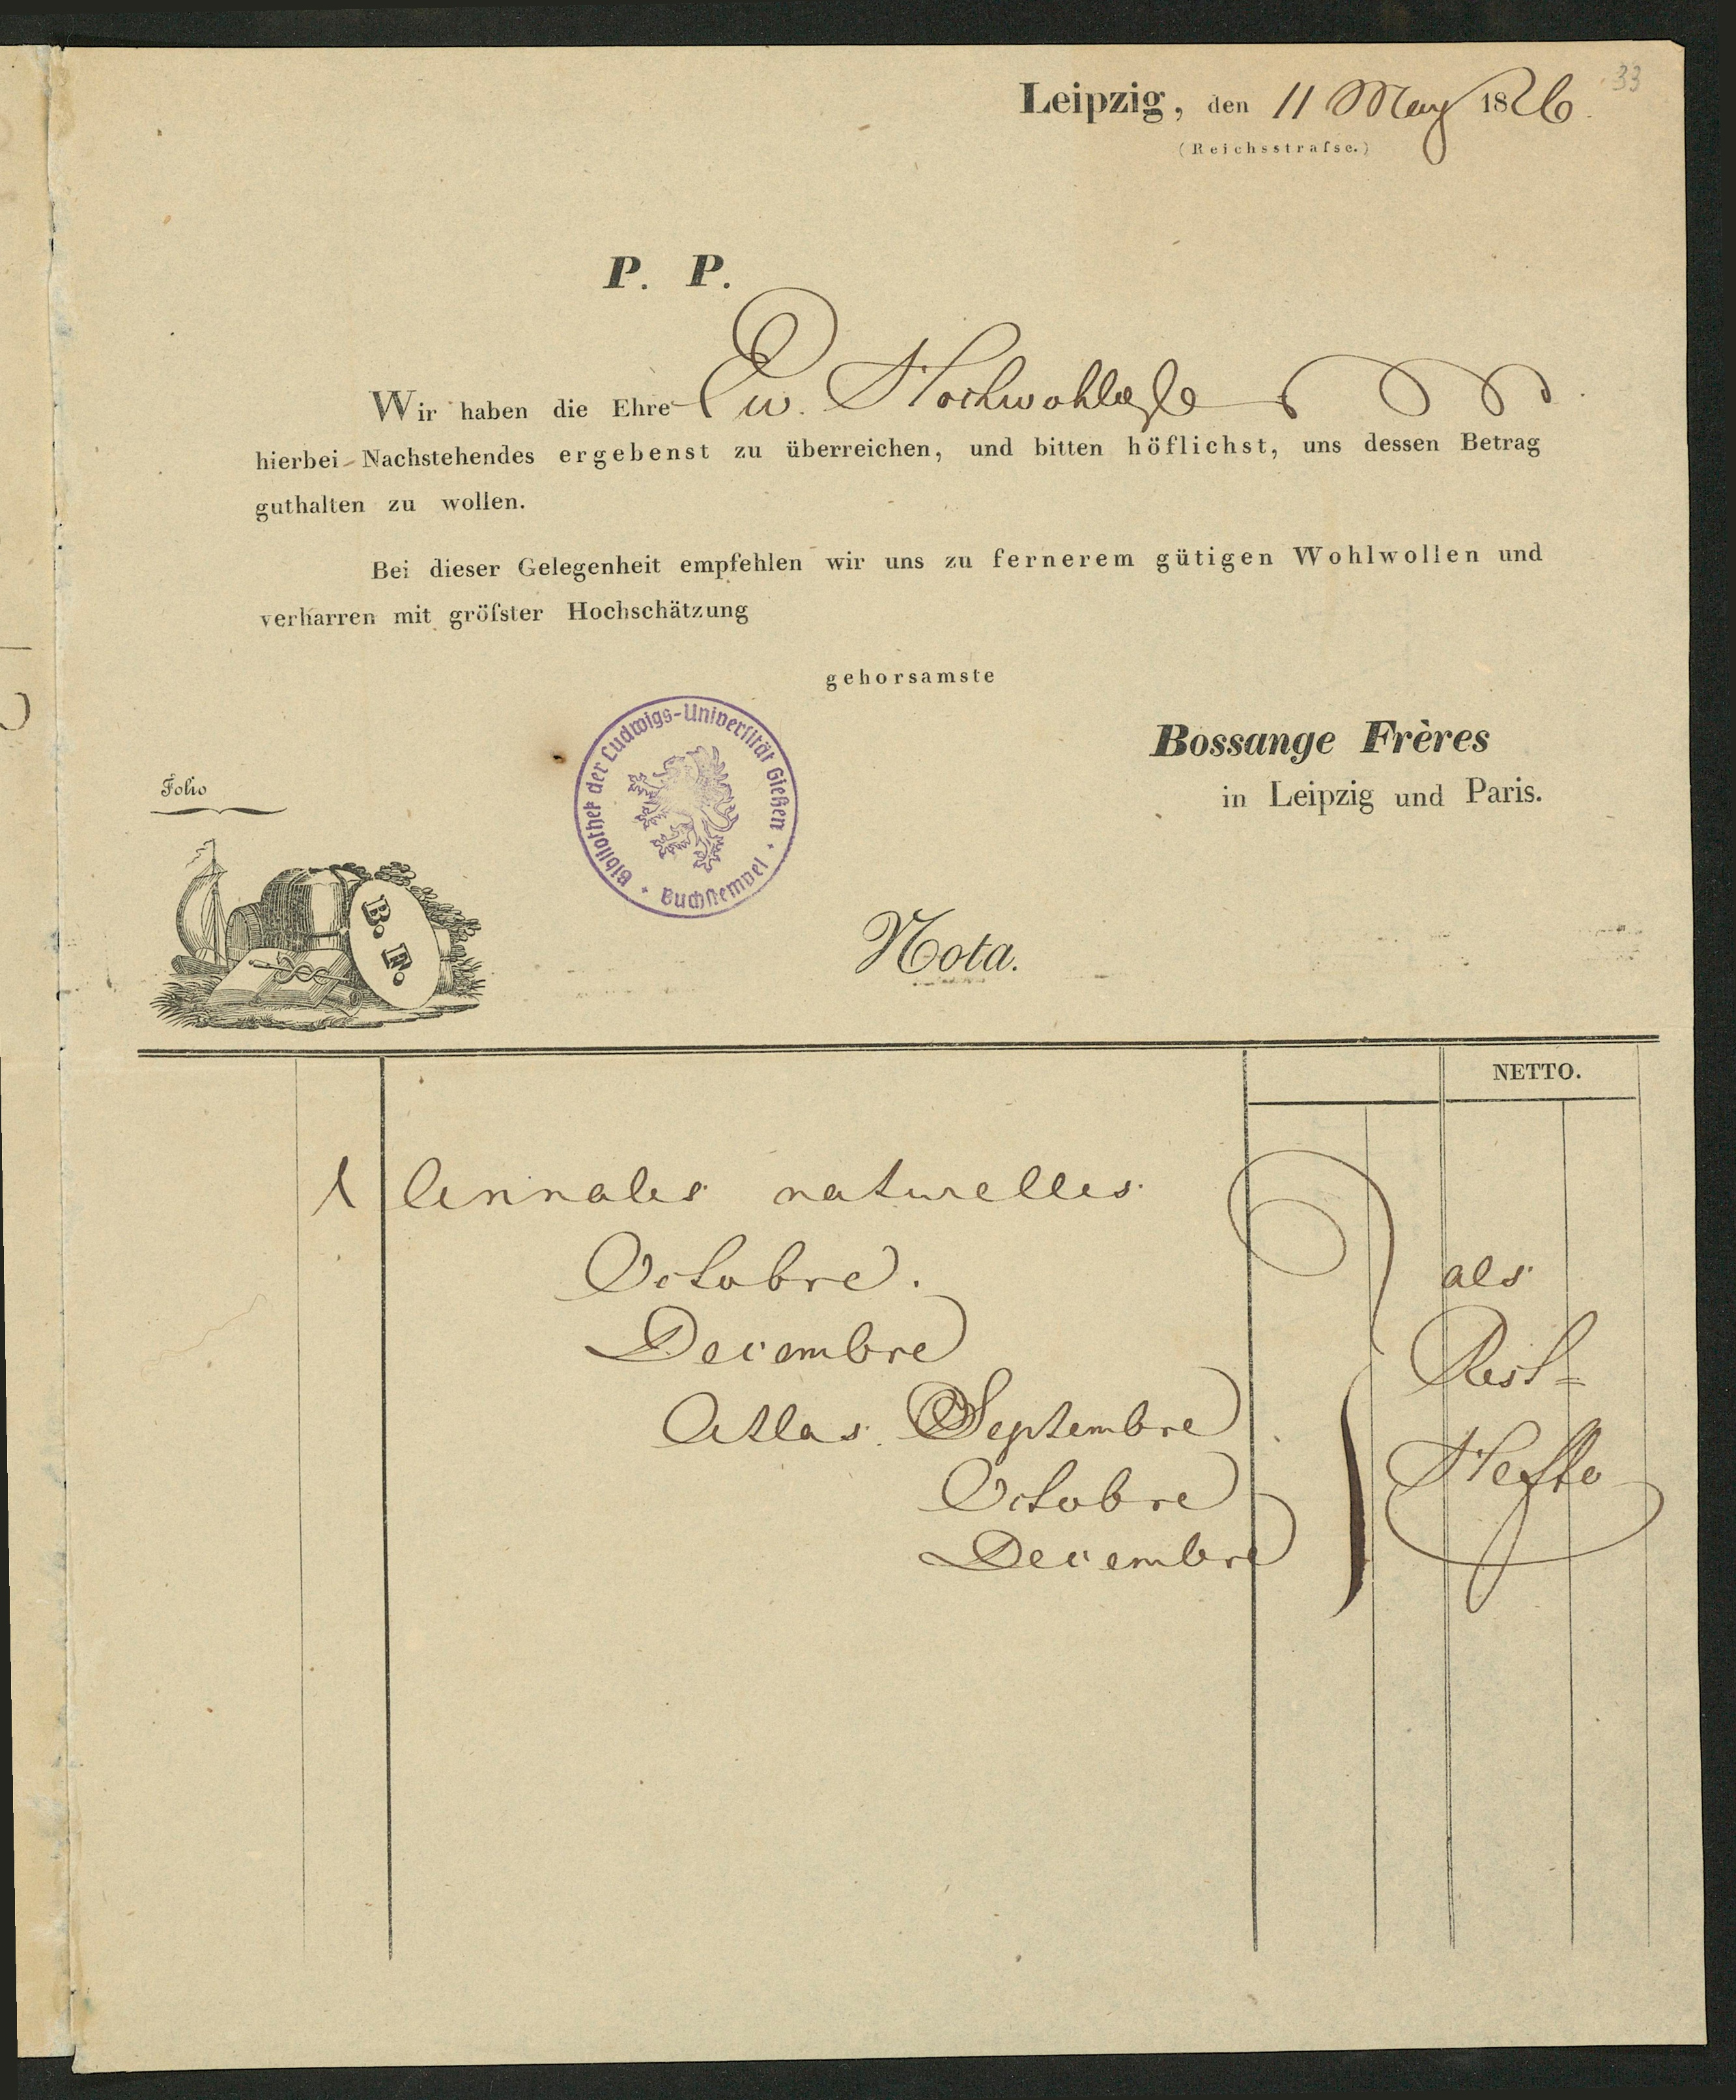 33
Leipzig, den 11 May 1826.
(Reichsstraſse.)
P. P.
Wir haben die Ehre Ew. Hochwohl
hierbei Nachstehendes ergebenst zu überreichen, und bitten höflichst, uns dessen Betrag
guthalten zu wollen.
Bei dieser Gelegenheit empfehlen wir uns zu fernerem gütigen Wohlwollen und
verharren mit gröſster Hochschätzung
gehorsamste
Bossange Frères
in Leipzig und Paris.
Folio
Bibliothek der Ludwigs-Universität Gießen
Buchstempel
B. F.
Nota.
NETTO.
1 Annales naturelles
Octobre.
Decembre
Atlas. Septembre
Octobre
Decembre
als
Rest=
Hefte